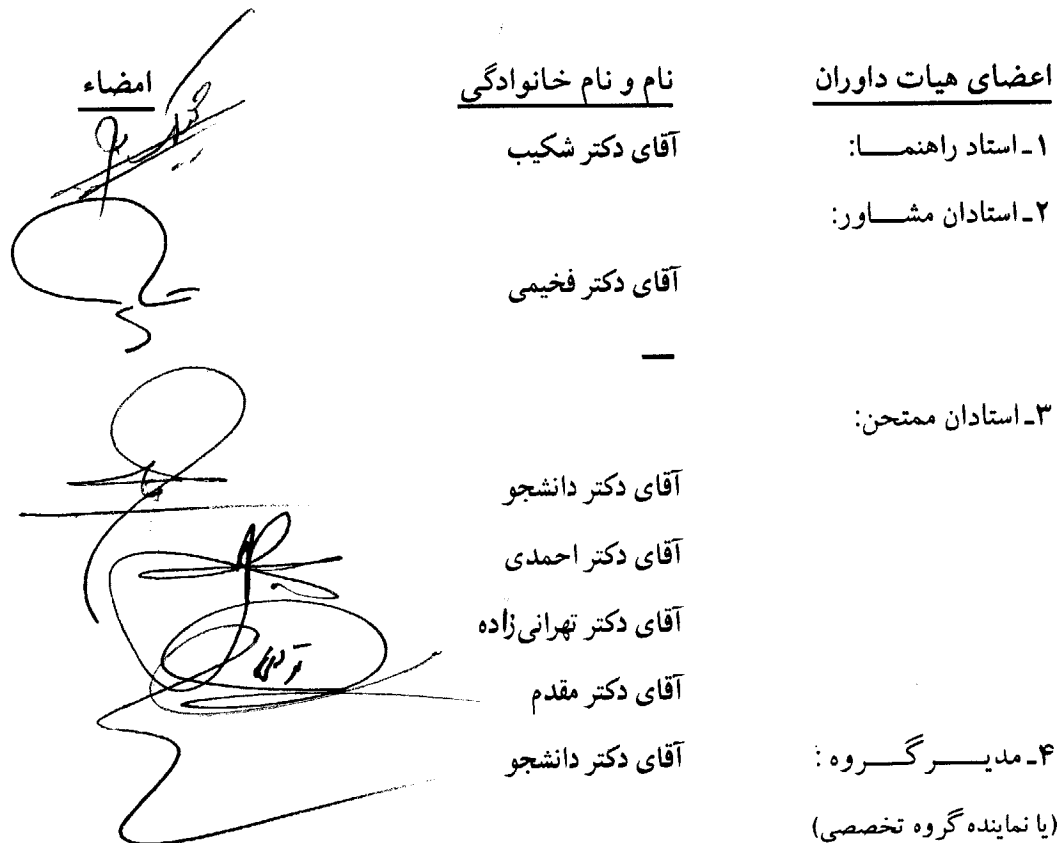 اعضای هیات داوران نام و نام خانوادگی امضاء
۱ـ استاد راهنمـــا: آقای دکتر شکیب
۲ـ استادان مشـــاور:
آقای دکتر فخیمی
—
۳ـ استادان ممتحن:
آقای دکتر دانشجو
آقای دکتر احمدی
آقای دکتر تهرانی‌زاده
آقای دکتر مقدم
۴ـ مدیـــر گـــروه : آقای دکتر دانشجو
(یا نماینده گروه تخصصی)